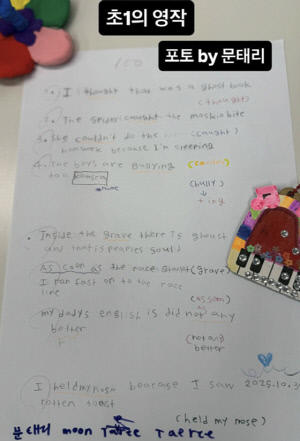 초1의 영작
포토 by 문태리
100
1. I thought that was a ghost book
(thought)
2. The spider caught the moskitobite
3. She couldn't do the (caught)
homework because I'm sleeping
4. The boys are bullying
too
(bully)
↓
+ing
Inside the grave there is ghoust
and that is peaples sould
(grave)
As soon as the race start
I ran fast on to the race
line
(as soon)
my dady's english is did not any
better
(not any
better)
I held my nose bearase I saw
rotten toast
2025.10.3
(held my nose)
문태리 moon taerce